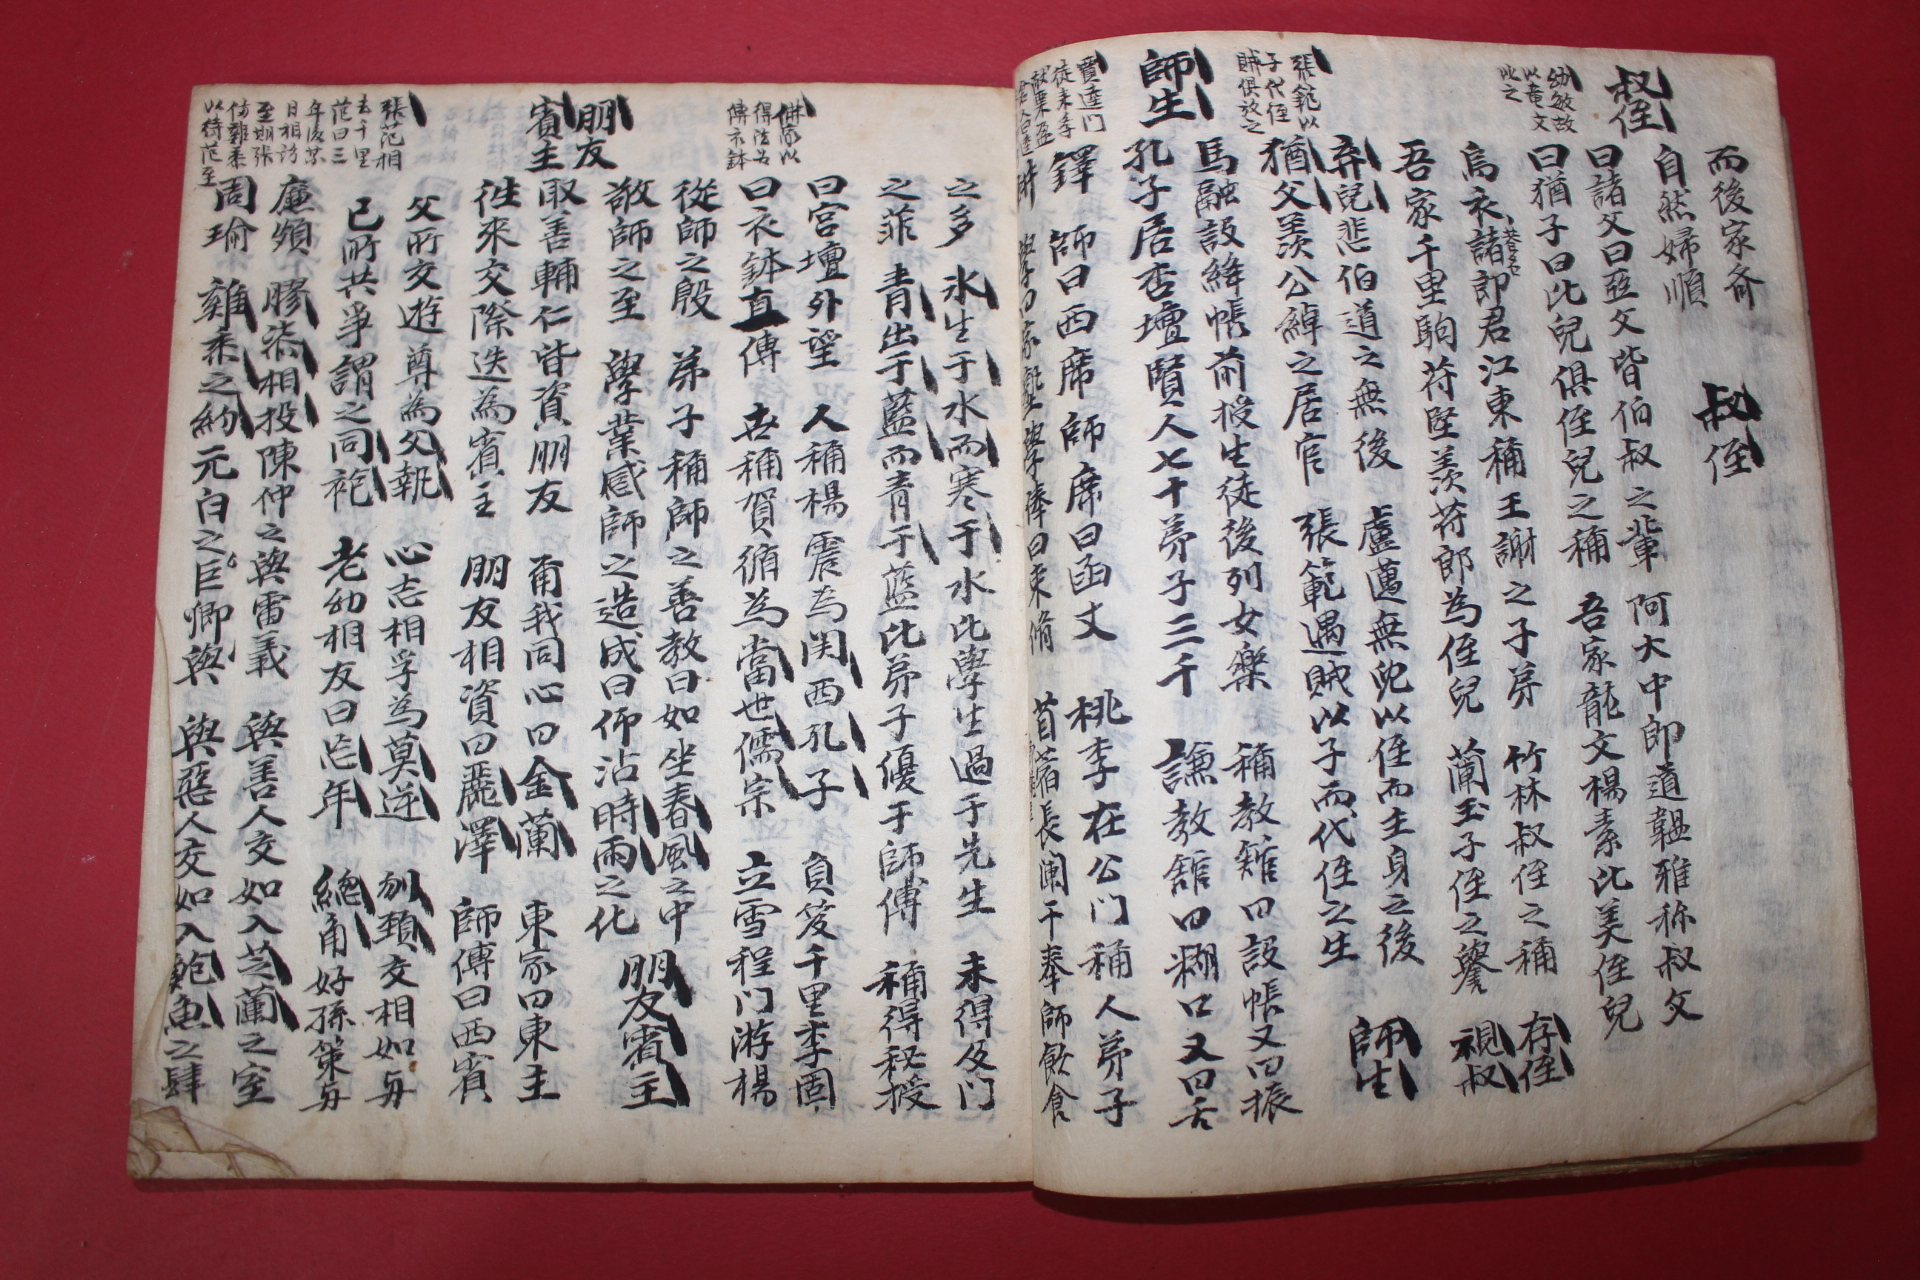 而後家齊 叔侄
自然婦順
叔侄
曰諸父曰亞父皆伯叔之輩 阿大中郎道韞雅称叔父
幼敏故
以竜文
比之
曰猶子曰比兒俱侄兒之稱 吾家龍文楊素比美侄兒
烏衣諸郎君江東稱王謝之子弟 竹林叔侄之稱 存侄
吾家千里駒苻堅羨苻郎為侄兒 蘭玉子侄之譽 視叔
棄兒悲伯道之無後 盧邁無兒以侄而主身之後
張範以
子代侄
賊俱放之
猶父羨公綽之居官 張範遇賊以子而代侄之生 師生
馬融設絳帳前授生徒後列女樂 稱教館曰設帳又曰振
師生
孔子居杏壇賢人七十弟子三千 謙教舘曰糊口又曰舌
賈逵門
徒來季
献粟盈
鐸 師曰西席師席曰函丈 桃李在公门稱人弟子
耕 學子曰家塾學子俸曰束脩 苜蓿長闌干奉師飲食
之多 氷生于水而寒于水比學生過于先生 未得及门
之菲 青出于藍而青于藍比弟子優于師傅 稱得秘授
曰宮墻外望 人稱楊震為関西孔子 負笈千里李固
佛家以
得法者
傳衣鉢
曰衣鉢直傳 世稱賀循為當世儒宗 立雪程门游楊
從師之殷 弟子稱師之善教曰如坐春風之中
敬師之至 學業感師之造成曰仰沾時雨之化 朋友賓主
朋友
賓主
取善輔仁皆資朋友 甭我同心曰金蘭 東家曰東主
徃來交際迭為賓主 朋友相資曰麗澤 師傅曰西賓
父所交遊尊為父執 心志相孚為莫逆 刎頚交相如与
己所共爭謂之同袍 老幼相友曰忘年 總角好孫策与
張范相
去千里
范曰三
年後某
日相訪
至期張
仿雞黍
以待范至
廉頗 膠漆相投陳仲之與雷義 與善人交如入芝蘭之室
周瑜 雞黍之約元白之巨卿與 與惡人交如入鮑魚之肆